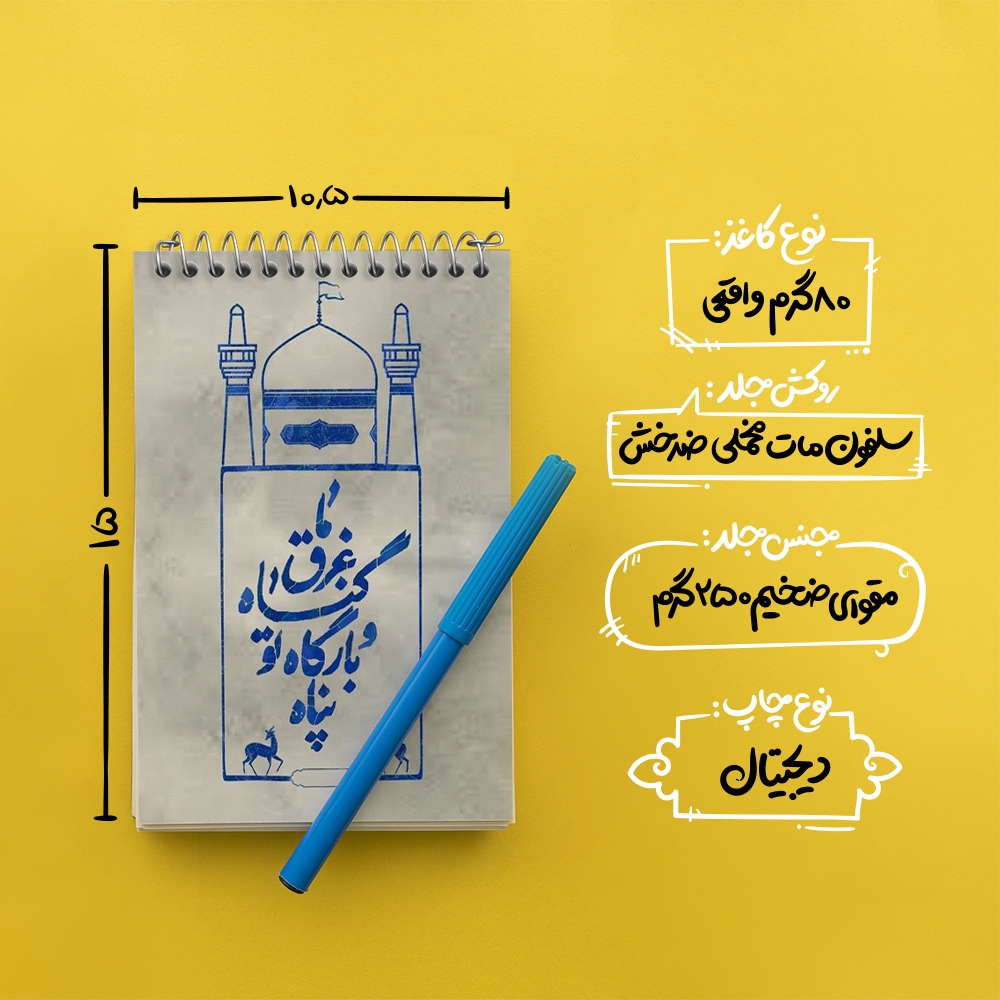 ۱۰٫۵
۱۵
ما
غرق
گناه
و بارگاه تو
پناه
نوع کاغذ:
۸۰ گرم واقعی
روکش مجلد:
سلفون مات مخملی ضدخش
جنس مجلد:
مقوای ضخیم ۲۵۰ گرم
نوع چاپ:
دیجیتال